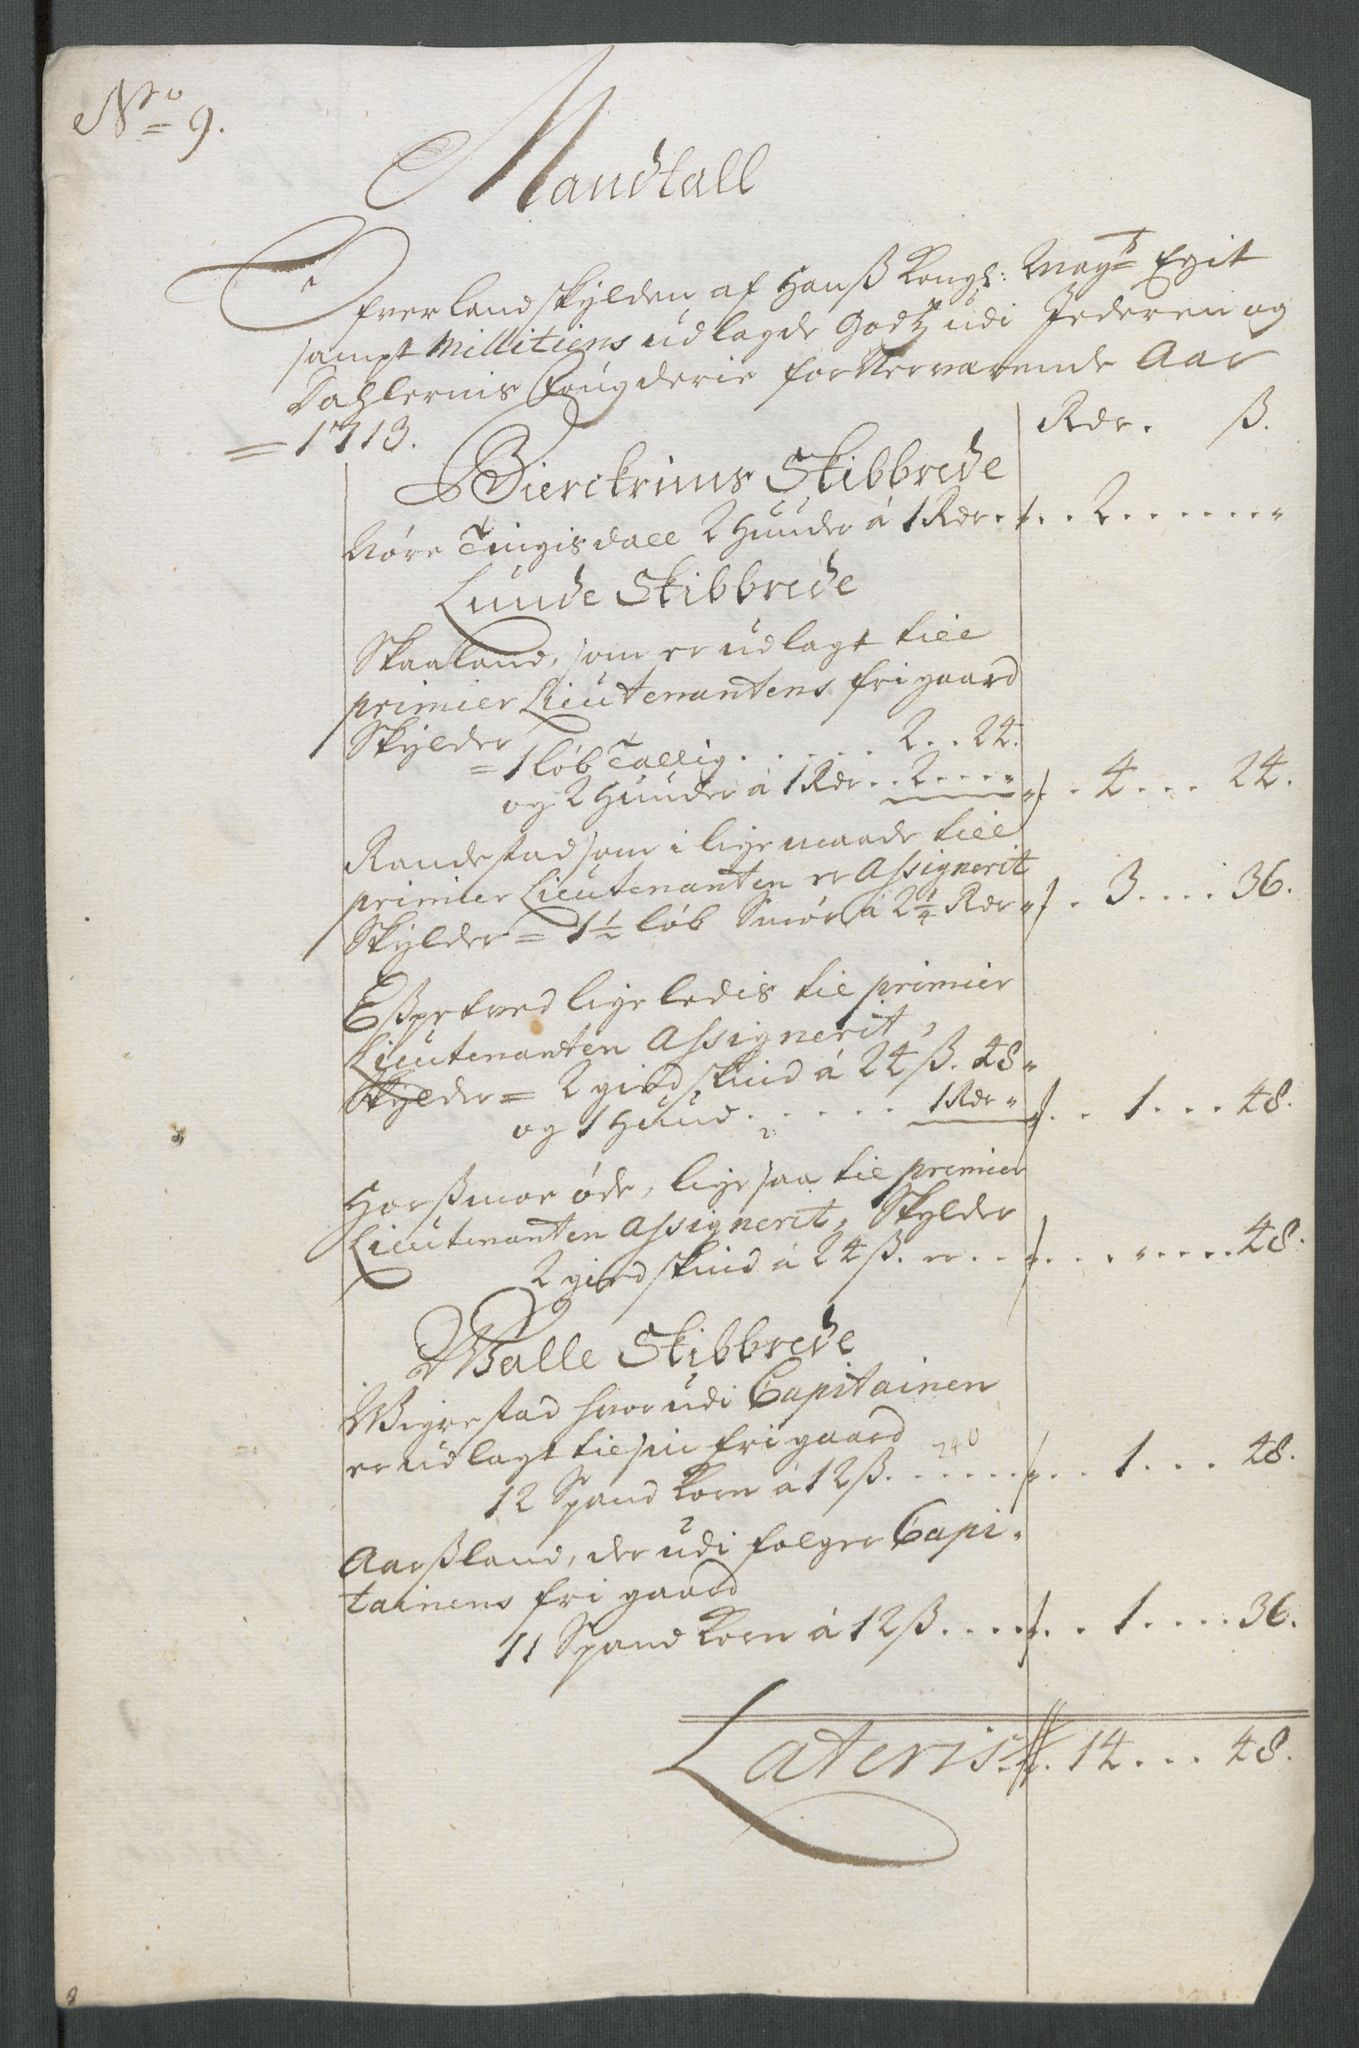 No 9.
Mandtall
Ofver Landskylden af Hanß Kongl: Mayts Egit
sampt Millitiens udlagde Godtz udi Jederen og
Dahlernis Fougderie for Nerværende Aar
= 1713.
Rdr. ß.
Bierckrims Skibbrede
Nóre Tingisdall 2 Huuder á 1 Rdr. 2 . . . . . . „
Lunde Skibbrede
Skaaland, som er udlagt till
primier Lieutenantens frigaard
Skylder
= 1 løb Tallig . . . . . 2 . . 24.
og 2 Huuder á 1 Rdr . . 2 . . . „ 4 . . . 24.
Randestad som i lige maade till
primier Lieutenanten er Assignerit
Skylder = 1½ løb Smør á 2¼ Rdr 3 . . . . 36.
Eßpetved ligeledis til primier
Lieutenanten Assignerit,
Skylder = 2 giedskind á 24 ß. 48 „
og 1 Huud . . . . . 1 Rdr „ 1 . . . 48.
Horßmoe øde, ligesaa til premier
Lieutenanten Assignerit, Skylder
2 giedskind á 24 ß. er . . . „ . . . . 48.
Walle Skibbrede
Wigrestad hvorudi Capitainen
er udlagt til sin frigaard
240
12 Spand Korn á 12 ß . . . . . . 1 . . . 48.
Aarßland, der udi følger Capi-
tainens fri gaard
11 Spand Korn á 12 ß . . . . 1 . . . . 36.
Lateris . 14 . . . 48.
8